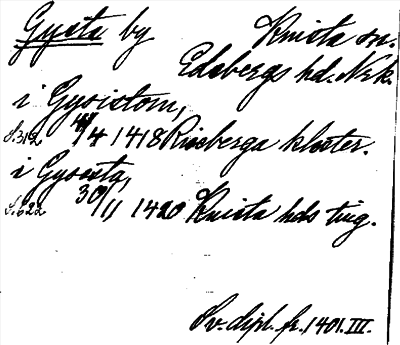 Gysta by Knista sn.
Edsbergs hd. Nrk.
i Gysistom,
S.312 4/4 1418 Riseberga kloster.
i Gysesta,
S.622 30/11 1420 Knista hds ting.
Sv. dipl. fr. 1401. III.